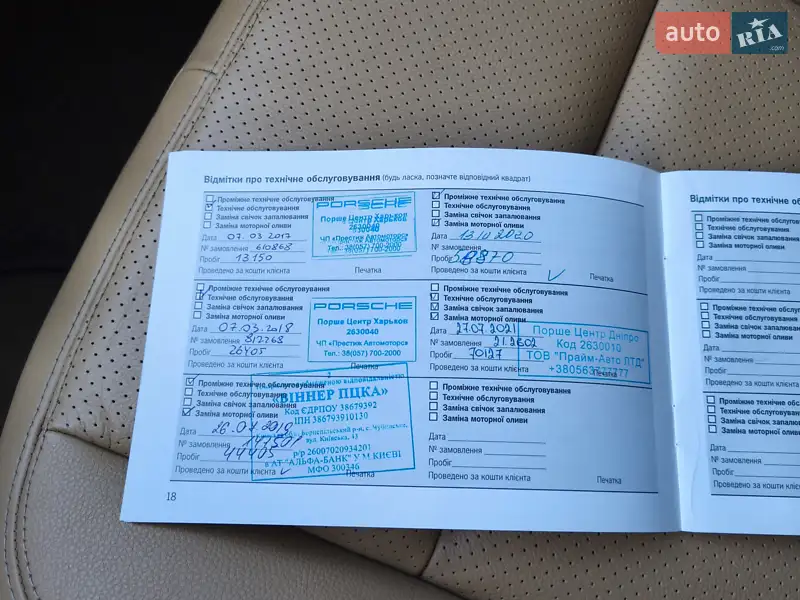 auto RIA.com
Відмітки про технічне обслуговування (будь ласка, позначте відповідний квадрат)
Проміжне технічне обслуговування
Технічне обслуговування
Заміна свічок запалювання
Заміна моторної оливи
Дата 07.03 2017
№ замовлення 610868
Пробіг 13150
Проведено за кошти клієнта Печатка
PORSCHE
Порше Центр Харьков
2630040
ЧП «Престиж Автомоторс»
Тел.: 38(057) 700-2000
Проміжне технічне обслуговування
Технічне обслуговування
Заміна свічок запалювання
Заміна моторної оливи
Дата 07.03.2018
№ замовлення 812768
Пробіг 26405
Проведено за кошти клієнта
PORSCHE
Порше Центр Харьков
2630040
ЧП «Престиж Автомоторс»
Тел.: 38(057) 700-2000
Проміжне технічне обслуговування
Технічне обслуговування
Заміна свічок запалювання
Заміна моторної оливи
Дата
№ замовлення
Пробіг 44405
Проведено за кошти клієнта Печатка
відповідальністю
«ВІННЕР ПЦКА»
Код ЄДРПОУ 38679392
ІПН 386793910130
вул. Київська, 43
р/р 26007020934201
в АТ "АЛЬФА-БАНК" У М.КИЄВІ
МФО 300346
18
Проміжне технічне обслуговування
Технічне обслуговування
Заміна свічок запалювання
Заміна моторної оливи
Дата
№ замовлення
Пробіг 58870
Проведено за кошти клієнта Печатка
Проміжне технічне обслуговування
Технічне обслуговування
Заміна свічок запалювання
Заміна моторної оливи
Дата 27.07.2021
№ замовлення
Пробіг 70127
Проведено за кошти клієнта Печатка
Порше Центр Дніпро
Код 2630010
ТОВ "Прайм-Авто ЛТД"
+380563777777
Проміжне технічне обслуговування
Технічне обслуговування
Заміна свічок запалювання
Заміна моторної оливи
Дата
№ замовлення
Пробіг
Проведено за кошти клієнта Печатка
Відмітки про технічне об
Проміжне технічне обслуговуван
Технічне обслуговування
Заміна свічок запалювання
Заміна моторної оливи
Дата
№ замовлення
Пробіг
Проведено за кошти клієнта
Проміжне технічне обслугов
Технічне обслуговування
Заміна свічок запалюванн
Заміна моторної оливи
Дата
№ замовлення
Пробіг
Проведено за кошти клієн
Проміжне технічне обслуг
Технічне обслуговування
Заміна свічок запалюван
Заміна моторної оливи
Дата
№ замовлення
Пробіг
Проведено за кошти клі